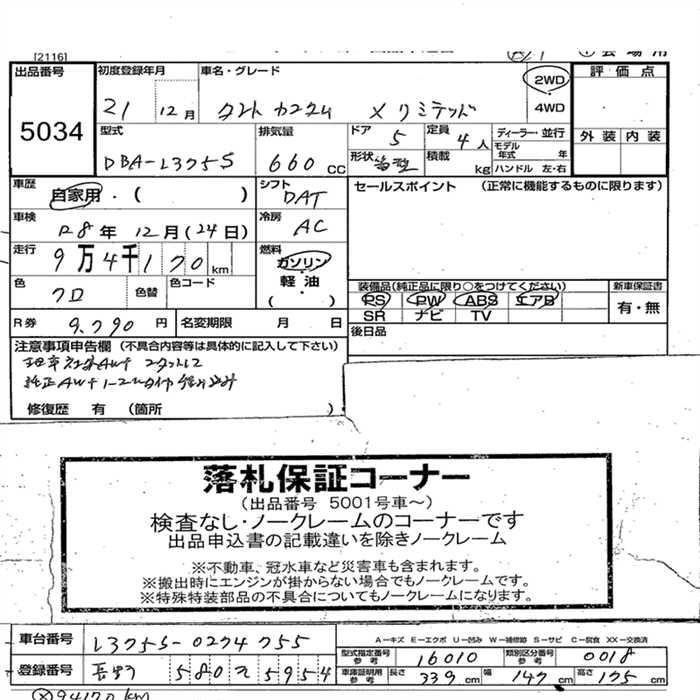 [2116]
出品番号 5034
初度登録年月 21 12月
車名・グレード タント カスタム X リミテッド
2WD
4WD
評価点
外装 内装
型式 DBA-L375S
排気量 660 CC
ドア 5
形状
定員 4人
積載 kg
ディーラー・並行
モデル年式 年
ハンドル 左・右
車歴 自家用・( )
シフト DAT
セールスポイント (正常に機能するものに限ります)
車検 R8年 12月(24日)
冷房 AC
走行 9万4千170km
燃料 ガソリン・軽油 ( )
色 クロ
色替
色コード
装備品(純正品に限り○をつけてください)
PS PW ABS エアB
SR ナビ TV
新車保証書
有・無
R券 9,790円
名変期限 月 日
後日品
注意事項申告欄 (不具合内容等は具体的に記入して下さい)
修復歴 有 (箇所 )
落札保証コーナー
(出品番号 5001号車~)
検査なし・ノークレームのコーナーです
出品申込書の記載違いを除きノークレーム
※不動車、冠水車など災害車も含まれます。
※搬出時にエンジンが掛からない場合でもノークレームです。
※特殊特装部品の不具合についてもノークレームになります。
車台番号 L375S-0274755
A-キズ E-エクボ U-凹み W-補修跡 S-サビ C-腐食 XX-交換済
型式指定番号 参考 16010
類別区分番号 参考 0018
登録番号 長野 580 ス 5954
車庫証明用 参考 長さ 339cm 幅 147cm 高さ 175cm
94170km